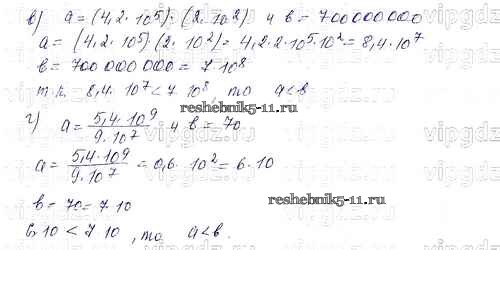 в) a = (4,2 · 10⁵) · (2 · 10²) и в = 700 000 000
a = (4,2 · 10⁵) · (2 · 10²) = 4,2 · 2 · 10⁵ · 10² = 8,4 · 10⁷
в = 700 000 000 = 7 · 10⁸
т.к. 8,4 · 10⁷ < 7 · 10⁸, то a < в
reshebnik5-11.ru
г) a = 5,4 · 10⁹ / 9 · 10⁷ и в = 70
a = 5,4 · 10⁹ / 9 · 10⁷ = 0,6 · 10² = 6 · 10
reshebnik5-11.ru
в = 70 = 7 · 10
6 · 10 < 7 · 10, то a < в.
vipgdz.ru
vipgdz.ru
vipgdz.ru
vipgdz.ru